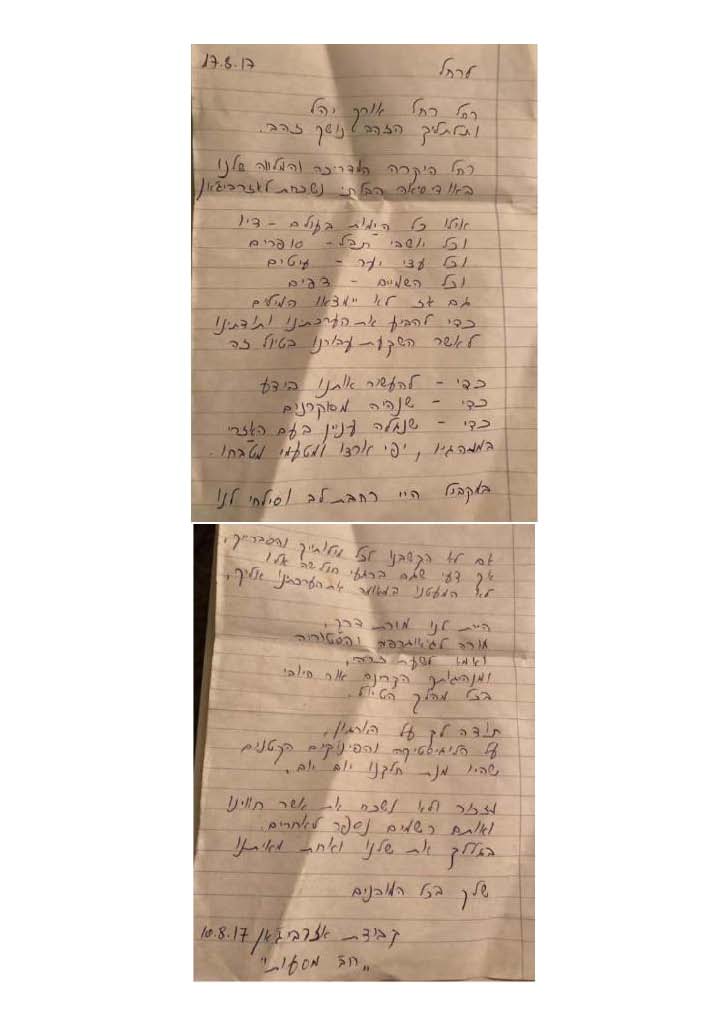 17.8.17
לרחל
רחל רחל אורך יהל
ותלתליך הזהב נושף זהב.
רחל היקרה המדריכה והמלווה שלנו
באודיסיאה הבלתי נשכחת לאזרבייג'אן
אילו כל הימות בעולם - דיו
וכל יושבי תבל - סופרים
וכל עצי יער - עיטים
וכל השמיים - דפים
גם אז לא יימצאו המילים
כדי להביע את הערכתנו ותודתינו
לאשר השקעת עבורנו בטיול זה
כדי - להעשיר אותנו בידע
כדי - שנהיה מסוקרנים
כדי - שנגלה עניין בעם האזרי
במנהגיו, יפי ארצו ומטעמי מטבחו.
במקביל היי רחבת לב וסילחי לנו
אם לא הקשבנו לכל מילותיך והסברייך,
אך דעי שגם ברגעי חולשה אלו
לא המעטנו במאומה את הערכתינו אליך,
היית לנו מורת דרך,
מורה לגיאוגרפיה והסטוריה
ואמא לשעת צרה,
ומנהגותך הקרינה אור חיובי
בכל מהלך הטיול.
תודה לך על הארגון,
על הלוגיסטיקה והפינוקים הקטנים
שהיו מנת חלקנו יום יום.
נזכור ולא נשכח את אשר חווינו
ואותם רשמים נספר לאחרים.
בגללך את שלנו ואחת מאיתנו
שלך בכל המובנים
קבוצת אזרבייג'אן 10.8.17
"חב מסעות"